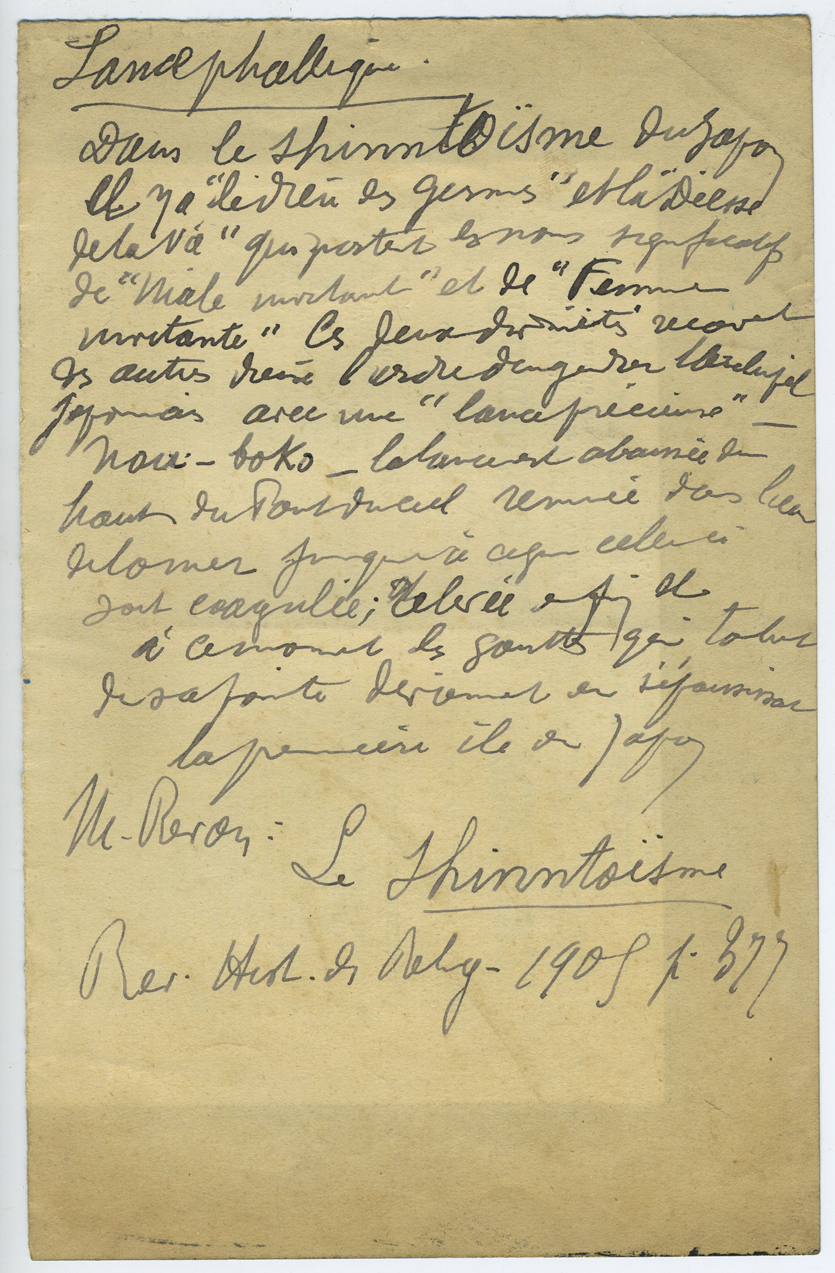 Lance phallique.
Dans le shinntoïsme du Japon
il y a "le dieu des germes" et la "Déesse
de la Vie" qui portent les noms significatifs
de "Mâle invitant" et de "Femme
invitante" Ces deux divinités recoivent
des autres dieux l'ordre d'engendrer l'Archipel
japonais avec une "lance précieuse" —
boko — la lance est abaissée du
haut du Pont du ciel remuée dans l'eau
de la mer jusqu'à ce que celle-ci
soit coagulée; relevée enfin et
à ce moment les gouttes qui tombent
de sa pointe deviennent en s'épaississant
la première île du Japon
M. Revon:
Le Shinntoïsme
Rev. Hist. des Relig- 1905 p. 377